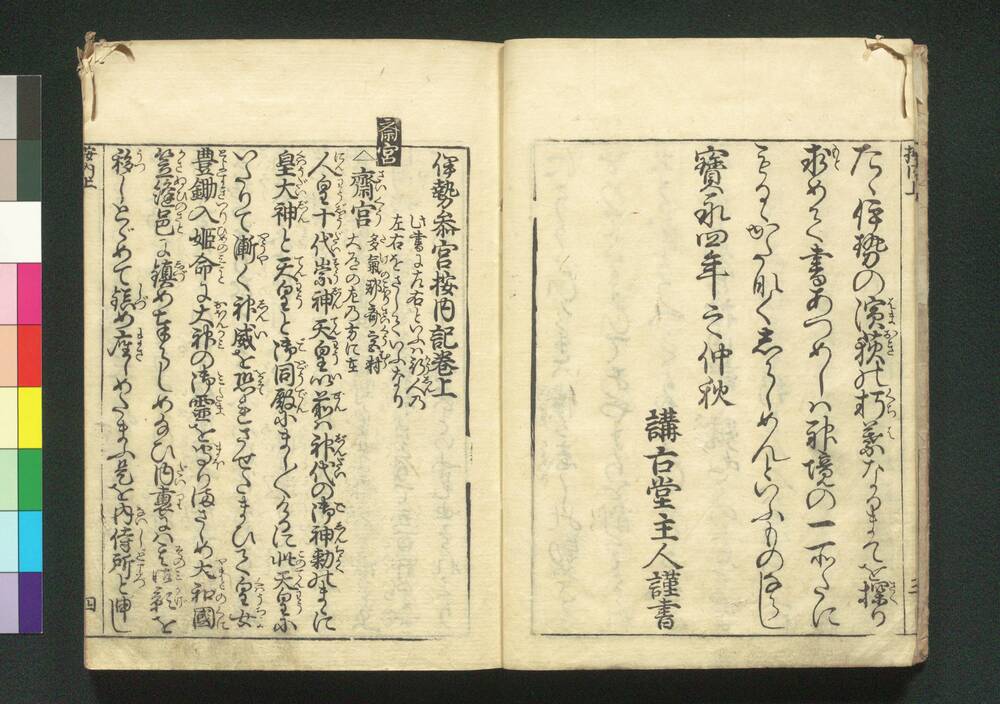 たゝ伊勢の濱荻の朽葉なるまてを探り
求めて書あつめしハ神境の一所たに
もるゝかたなくしらしめんといふものならし
寶永四年之仲秋
講古堂主人謹書
伊勢参宮按内記巻上
此書に左右といふハ行人の
左右をさしていふなり
齋宮
△齋宮 多氣郡斎宮村
大道の左の方に在
人皇十代崇神天皇以前ハ神代の御神勅のまゝに
皇大神と天皇と御同殿にましくけるに此天皇に
いたりて漸く神威を恐れさせたまひて皇女
豊鋤入姫命に大神の御霊を守りまさしめ大和國
笠縫邑に鎮め奉らしめ給ひ内裏にハ其御影を
移しとゞめて鎮め座しめたまふ是を内侍所と申し
四